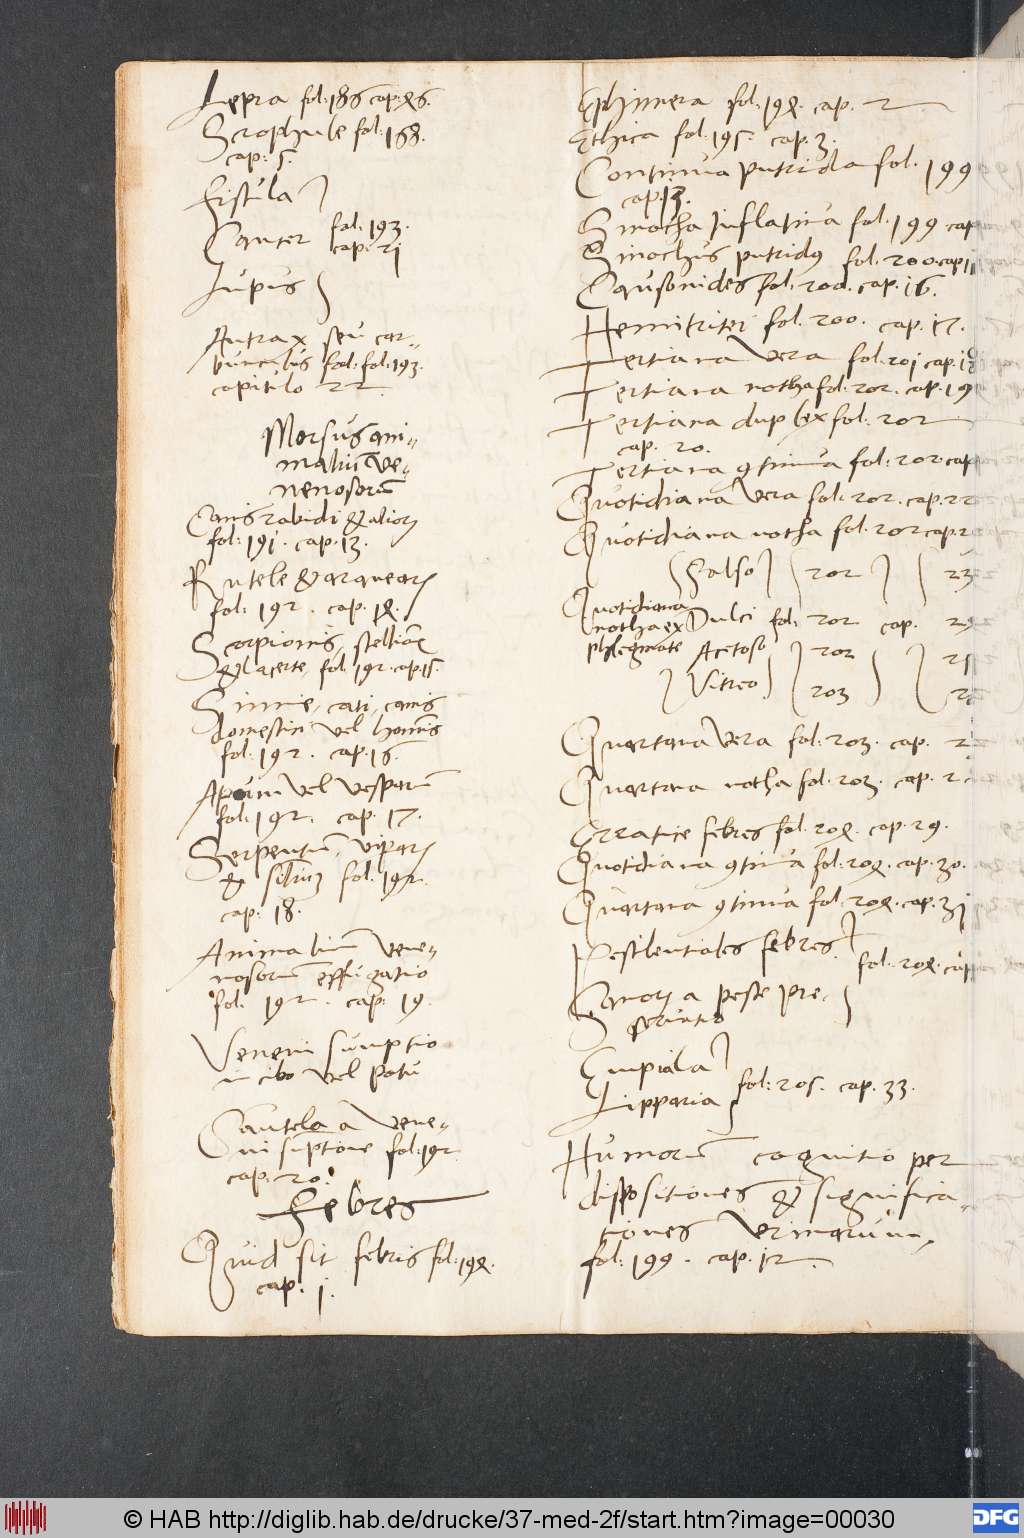 Lepra fol. 186 cap. 46.
Scrophule fol. 168.
cap. 5.
Fistula
Cancer fol. 193.
cap. 21
Lupus
Antrax seu car-
bunculus fol. fol. 193.
capitulo 22.
Morsus ani-
maliū ve-
nenosorū
Canis rabidi & alioꝝ
fol. 191. cap. 13.
Rutele & araneaꝝ
fol. 192. cap. 14.
Scorpionis, stellionis
& lacerte, fol. 192. cap. 15.
Simie, cati, canis
domestici vel hominis
fol. 192. cap. 16.
Apum vel vesparū
fol. 192. cap. 17.
Serpentū, viparꝝ
& similiū fol. 192.
cap. 18.
Animalium vene-
nosorum effugatio
fol. 192. cap. 19.
Veneni sumptio
in cibo vel potu
Cautela a vene-
ni sūptione fol. 192
cap. 20.
Febres
Quid sit febris fol. 194.
cap. 1.
Ephimera fol. 194. cap. 2
Ethica fol. 195. cap. 3.
Continua putrida fol. 199
cap. 13.
Sinocha Inflatiua fol. 199 cap
Sinochus putridus fol. 200 cap 11
Causonides fol. 200. cap. 16.
Hemitritei fol. 200. cap. 17.
Tertiana vera fol. 201 cap. 18
Tertiana notha fol. 202. cap. 19
Tertiana duplex fol. 202
cap. 20.
Tertiana ꝯtinua fol. 202 cap
Quotidiana vera fol. 202. cap. 22
Quotidiana notha fol. 202 cap. 2
Salso 202 23
Quotidiana
notha ex Dulci fol. 202 cap. 24
phlegmate Acetoso 202 25
Vitreo 203 2
Quartana vera fol. 203. cap. 2
Quartana notha fol. 203. cap. 2
Erratice febres fol. 204. cap. 29.
Quotidiana ꝯtinua fol. 204. cap. 30.
Quartana ꝯtinua fol. 204. cap. 31
Pestilentiales febres.
fol. 204. cap
Sanoꝝ a peste pre-
seruatio
Empiala
fol. 205. cap. 33.
Lipparia
Humorum cognitio per
dispositiones & significa-
tiones Vrinarum,
fol. 199. cap. 12.
© HAB http://diglib.hab.de/drucke/37-med-2f/start.htm?image=00030
DFG